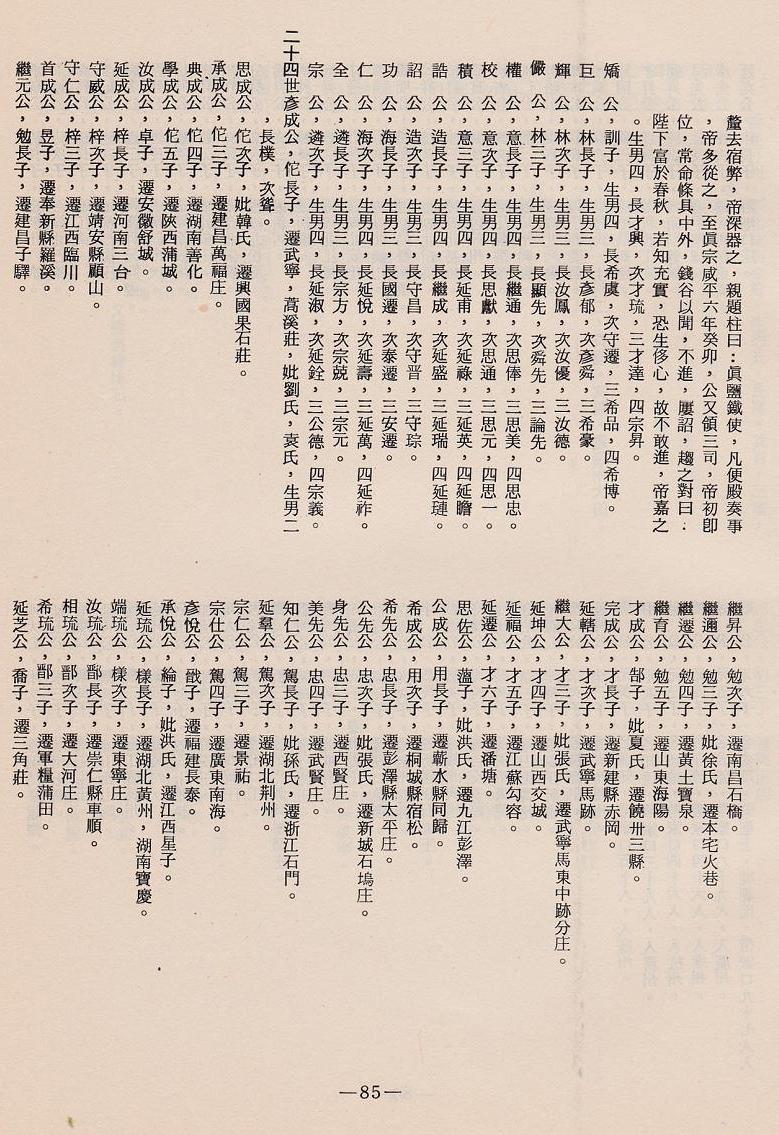 釐去宿弊，帝深器之，親題柱曰：眞鹽鐵使，凡便殿奏事
，帝多從之，至眞宗咸平六年癸卯，公又領三司，帝初卽
位，常命條具中外，錢谷以聞，不進，屢詔，趨之對曰：
陛下富於春秋，若知充實，恐生侈心，故不敢進，帝嘉之
。生男四，長才興，次才琉，三才達，四宗昇。
矯　公，訓子，生男四，長希虞，次守遷，三希品，四希博。
巨　公，林長子，生男三，長彥郁，次彥舜，三希豪。
輝　公，林次子，生男三，長汝鳳，次汝優，三汝德。
儼　公，林三子，生男三，長顯先，次舜先，三論先。
權　公，意長子，生男四，長繼通，次思俸，三思美，四思忠。
校　公，意次子，生男四，長思獻，次思通，三思元，四思一。
積　公，意三子，生男四，長延甫，次延祿，三延英，四延瞻。
誥　公，造長子，生男四，長繼成，次延盛，三延瑞，四延璉。
詔　公，造次子，生男三，長守昌，次守晋，三守琮。
功　公，海長子，生男三，長國遷，次泰遷，三安遷。
仁　公，海次子，生男四，長延悅，次延壽，三延萬，四延祚。
全　公，遴長子，生男三，長宗方，次宗兢，三宗元。
宗　公，遴次子，生男四，長延淑，次延銓，三公德，四宗義。
二十四世彥成公，佗長子，遷武寧，蒿溪莊，妣劉氏，袁氏，生男二
，長樸，次聳。
思成公，佗次子，妣韓氏，遷興國果石莊。
承成公，佗三子，遷建昌萬福庄。
典成公，佗四子，遷湖南善化。
學成公，佗五子，遷陝西蒲城。
汝成公，卓子，遷安徽舒城。
延成公，梓長子，遷河南三台。
守威公，梓次子，遷靖安縣顧山。
守仁公，梓三子，遷江西臨川。
首成公，昱子，遷奉新縣羅溪。
繼元公，勉長子，遷建昌子驛。
繼昇公，勉次子，遷南昌石橋。
繼邇公，勉三子，妣徐氏，遷本宅火巷。
繼遷公，勉四子，遷黃土寶泉。
繼育公，勉五子，遷山東海陽。
才成公，郜子，妣夏氏，遷饒卅三縣。
完成公，才長子，遷新建縣赤岡。
延轄公，才次子，遷武寧馬跡。
繼大公，才三子，妣張氏，遷武寧馬東中跡分庄。
延坤公，才四子，遷山西交城。
延福公，才五子，遷江蘇勾容。
延遷公，才六子，遷潘塘。
思佐公，薀子，妣洪氏，遷九江彭澤。
公成公，用長子，遷蘄水縣同歸。
希成公，用次子，遷桐城縣宿松。
希先公，忠長子，遷彭澤縣太平庄。
公先公，忠次子，妣張氏，遷新城石塢庄。
身先公，忠三子，遷西賢庄。
美先公，忠四子，遷武賢庄。
知仁公，駕長子，妣孫氏，遷浙江石門。
延羣公，駕次子，遷湖北荆州。
宗仁公，駕三子，遷景祐。
宗仕公，駕四子，遷廣東南海。
彥悅公，戩子，遷福建長泰。
承悅公，綸子，妣洪氏，遷江西星子。
延琉公，樣長子，遷湖北黃州，湖南寶慶。
端琉公，樣次子，遷東寧庄。
汝琉公，鄑長子，遷崇仁縣車順。
相琉公，鄑次子，遷大河庄。
希琉公，鄑三子，遷軍糧蒲田。
延芝公，喬子，遷三角莊。
—85—